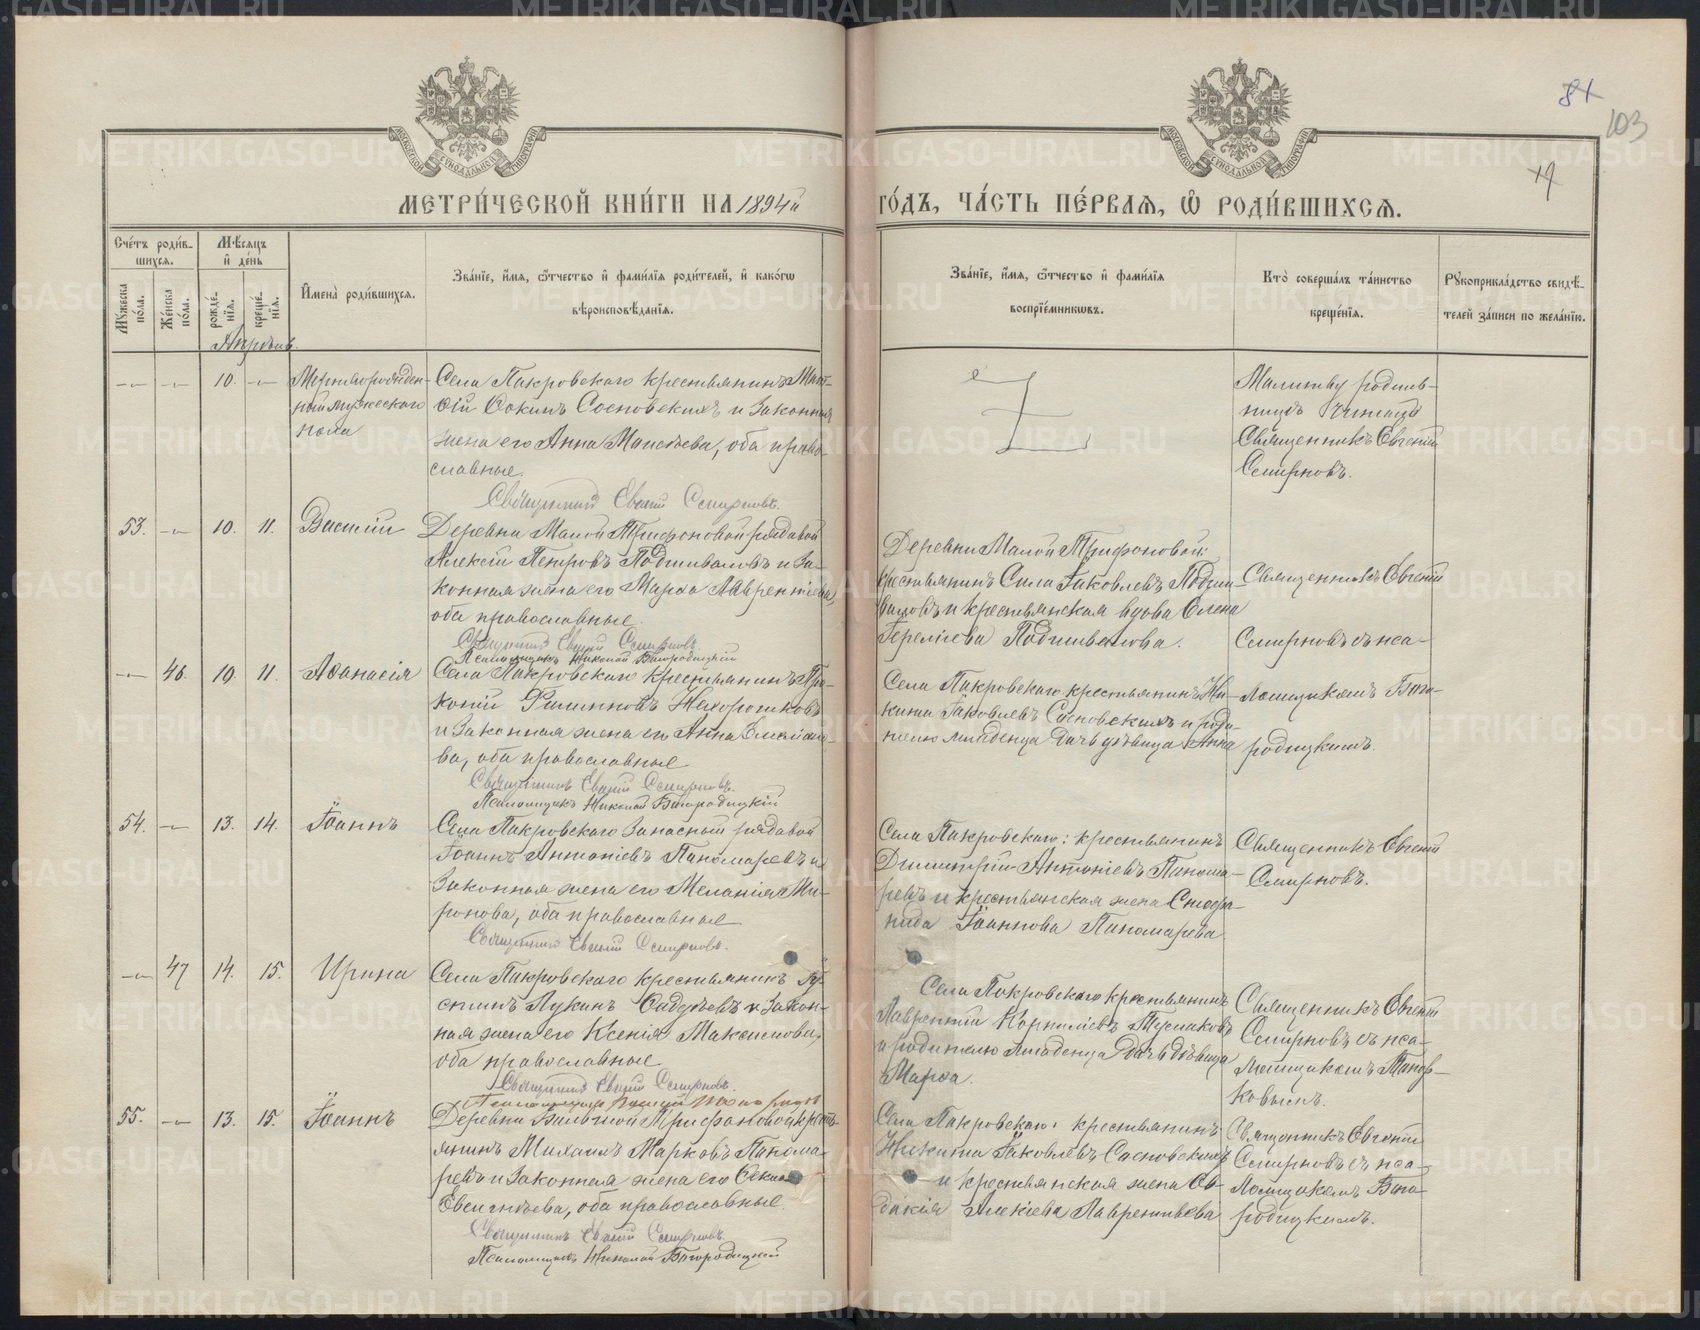 81
103
МЕТРИ́ЧЕСКОЙ КНИ́ГИ НА 1894й ГО́ДЪ, ЧА́СТЬ ПЕ́РВАЯ, Ѡ РОДИ́ВШИХСЯ.
Сче́тъ роди́вшихся.
Му́жеска по́ла.
Же́нска по́ла.
Мѣ́сяцъ и́ де́нь
рожде́нїя.
креще́нїя.
И҆мена̀ роди́вшихся.
Зва́нїе, и҆́мя, ѻ҆́тчество и҆ фами́лїя роди́телей, и҆ како́гѡ
вѣроисповѣ́данїя.
Зва́нїе, и҆́мя, ѻ҆́тчество и҆ фами́лїя
воспрїе́мникѡвъ.
Кто̀ соверша́лъ та́инство
креще́нїя.
Рукоприкла́дство свидѣ́-
телей за́писи по жела́нїю.
Апрѣль.
10.
Мертворожден-
ный мужескаго
пола
Села Покровскаго крестьянинъ Мат-
ѳій Фокинъ Сосновскихъ и законная
жена его Анна Моисѣева, оба право-
славные.
Священникъ Евгеній Смирновъ.
Молитву родиль-
ницѣ читалъ
Священникъ Евгеній
Смирновъ.
53. 10. 11. Василій
Деревни Малой Трифоновой рядовой
Алексій Петровъ Подшиваловъ и за-
конная жена его Марѳа Лаврентіева,
оба православные.
Священникъ Евгеній Смирновъ.
Псаломщикъ Николай Богородицкій
Деревни Малой Трифоновой:
крестьянинъ Сила Іаковлевъ Подши-
валовъ и крестьянская вдова Елена
Подшивалова.
Священникъ Евгеній
Смирновъ съ пса-
ломщикомъ Бого-
родицкимъ.
46. 10. 11. Аѳанасія
Села Покровскаго крестьянинъ Про-
копій Филипповъ Нехорошковъ
и законная жена его Анна Емельяно-
ва, оба православные
Священникъ Евгеній Смирновъ.
Псаломщикъ Николай Богородицкій
Села Покровскаго крестьянинъ Ни-
кита Іаковлевъ Сосновскихъ и роди-
телю младенца дочь дѣвица Анна
54. 13. 14. Іоаннъ
Села Покровскаго запасный рядовой
Іоаннъ Антоніевъ Пономаревъ и
законная жена его Меланія Ми-
ронова, оба православные
Священникъ Евгеній Смирновъ.
Села Покровскаго: крестьянинъ
Димитрій Антоніевъ Понома-
ревъ и крестьянская жена Стефа-
нида Іоаннова Пономарева.
Священникъ Евгеній
Смирновъ.
47 14. 15. Ирина
Села Покровскаго крестьянинъ Іу-
стинъ Лукинъ Ѳадѣевъ и закон-
ная жена его Ксенія Максимова,
оба православные
Священникъ Евгеній Смирновъ.
Села Покровскаго крестьянинъ
Лаврентій Корниліевъ Тусмаковъ
и родителю младенца дочь дѣвица
Марѳа.
Священникъ Евгеній
Смирновъ съ пса-
ломщикомъ Топор-
ковымъ.
55. 13. 15. Іоаннъ
Деревни Большой Трифоновой кресть-
янинъ Михаилъ Марковъ Понома-
ревъ и законная жена его Ѳекла
Евсигнѣева, оба православные.
Священникъ Евгеній Смирновъ.
Псаломщикъ Николай Богородицкій
Села Покровскаго: крестьянинъ
Никита Іаковлевъ Сосновскихъ
и крестьянская жена Ев-
докія Алексіева Лаврентьева
Священникъ Евгеній
Смирновъ съ пса-
ломщикомъ Бого-
родицкимъ.
METRIKI.GASO-URAL.RU